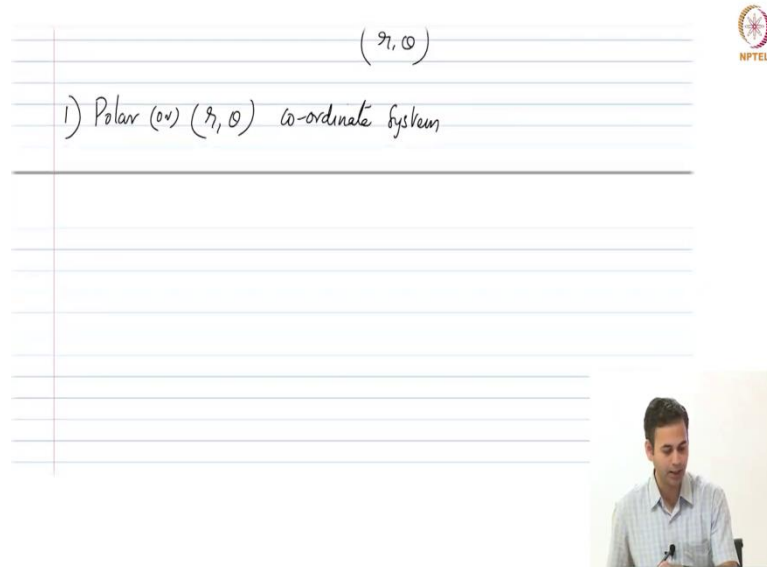 (r, θ)
NPTEL
1) Polar (or) (r, θ) co-ordinate system